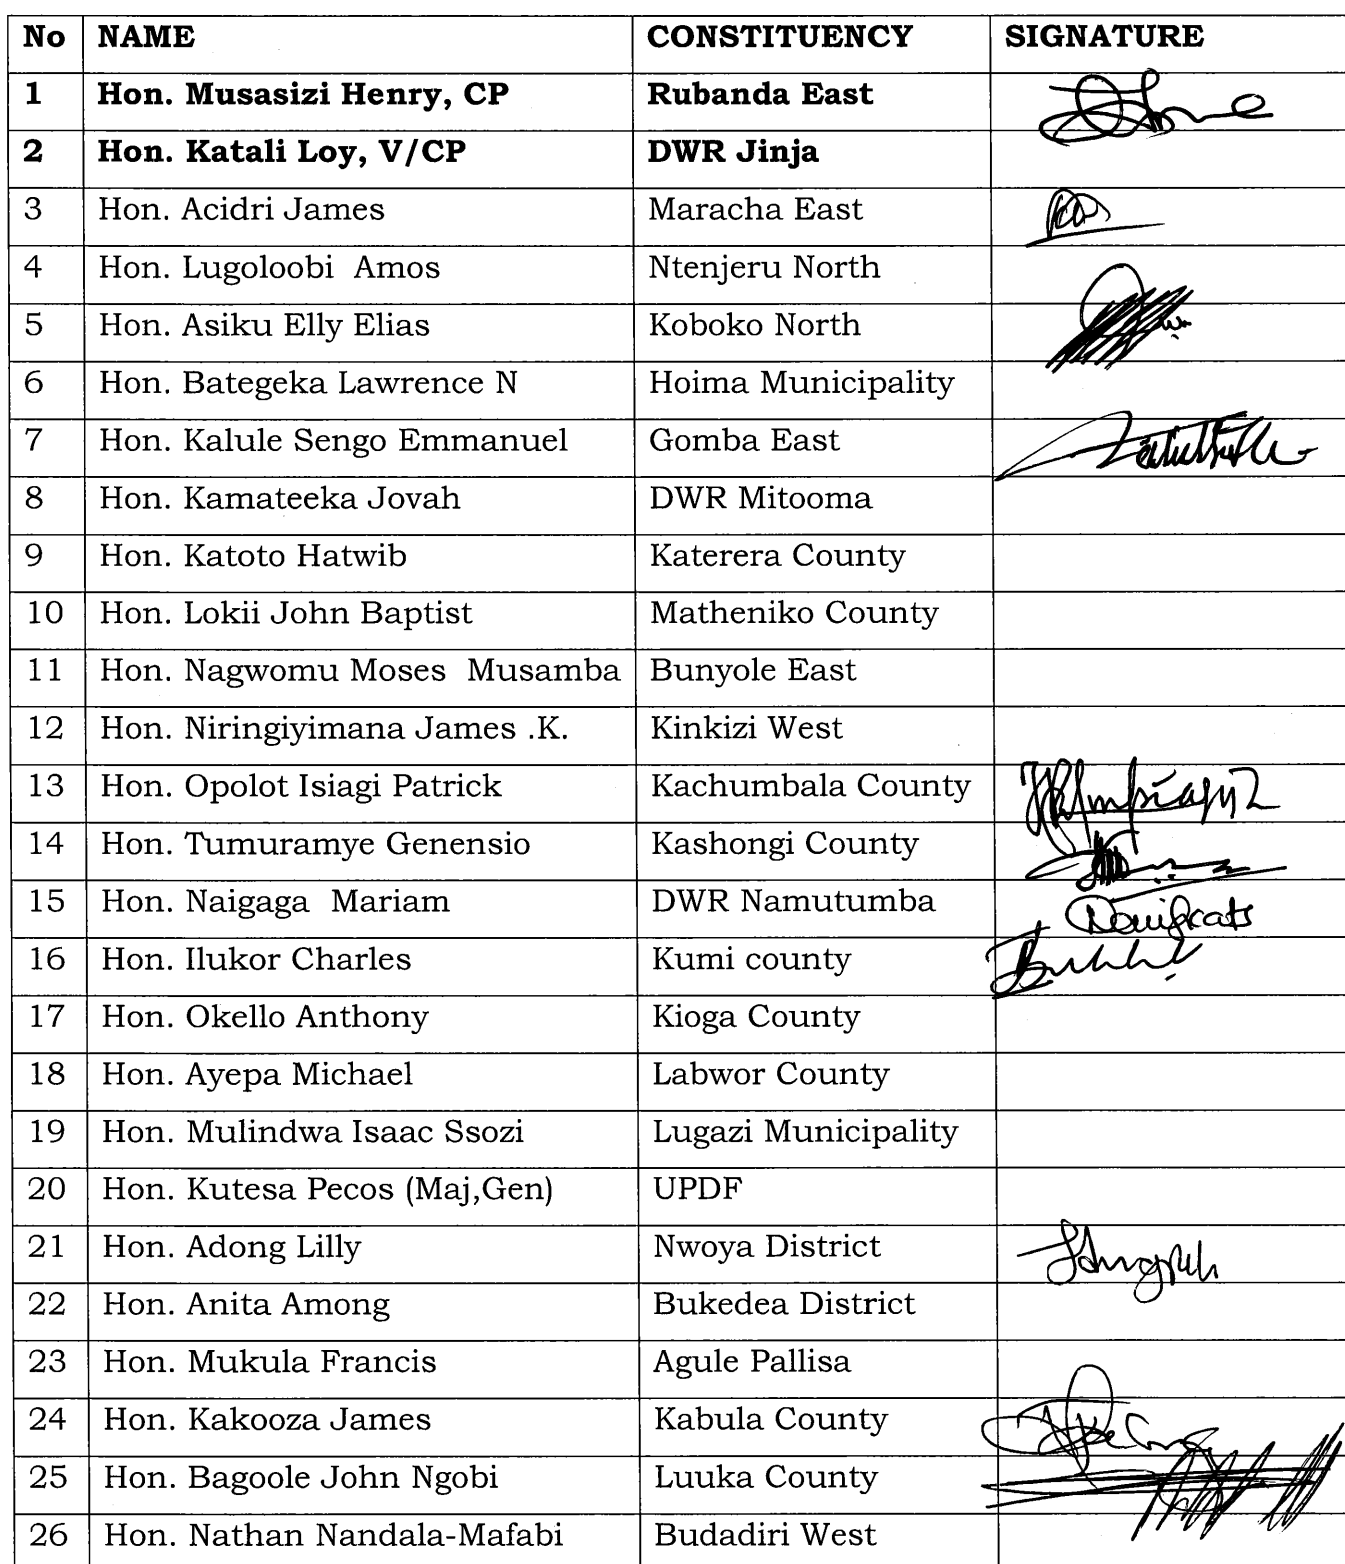 No NAME CONSTITUENCY SIGNATURE
1 Hon. Musasizi Henry, CP Rubanda East
2 Hon. Katali Loy, V/CP DWR Jinja
3 Hon. Acidri James Maracha East
4 Hon. Lugoloobi Amos Ntenjeru North
5 Hon. Asiku Elly Elias Koboko North
6 Hon. Bategeka Lawrence N Hoima Municipality
7 Hon. Kalule Sengo Emmanuel Gomba East
8 Hon. Kamateeka Jovah DWR Mitooma
9 Hon. Katoto Hatwib Katerera County
10 Hon. Lokii John Baptist Matheniko County
11 Hon. Nagwomu Moses Musamba Bunyole East
12 Hon. Niringiyimana James .K. Kinkizi West
13 Hon. Opolot Isiagi Patrick Kachumbala County
14 Hon. Tumuramye Genensio Kashongi County
15 Hon. Naigaga Mariam DWR Namutumba
16 Hon. Ilukor Charles Kumi county
17 Hon. Okello Anthony Kioga County
18 Hon. Ayepa Michael Labwor County
19 Hon. Mulindwa Isaac Ssozi Lugazi Municipality
20 Hon. Kutesa Pecos (Maj,Gen) UPDF
21 Hon. Adong Lilly Nwoya District
22 Hon. Anita Among Bukedea District
23 Hon. Mukula Francis Agule Pallisa
24 Hon. Kakooza James Kabula County
25 Hon. Bagoole John Ngobi Luuka County
26 Hon. Nathan Nandala-Mafabi Budadiri West